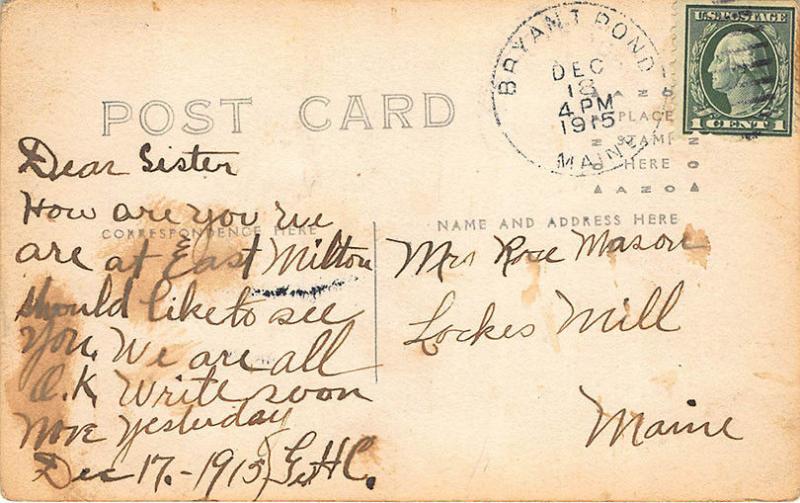 POST CARD
BRYANT POND
DEC
18
4 PM
1915
MAINE
U.S. POSTAGE
1 CENT 1
AZO
PLACE
STAMP
HERE
AZO
CORRESPONDENCE HERE
NAME AND ADDRESS HERE
Dear Sister
How are you we
are at East Milton
should like to see
you. We are all
O.K. Write soon
yesterday
Dec 17.-1915
Mrs Rose Mason
Lockes Mill
Maine